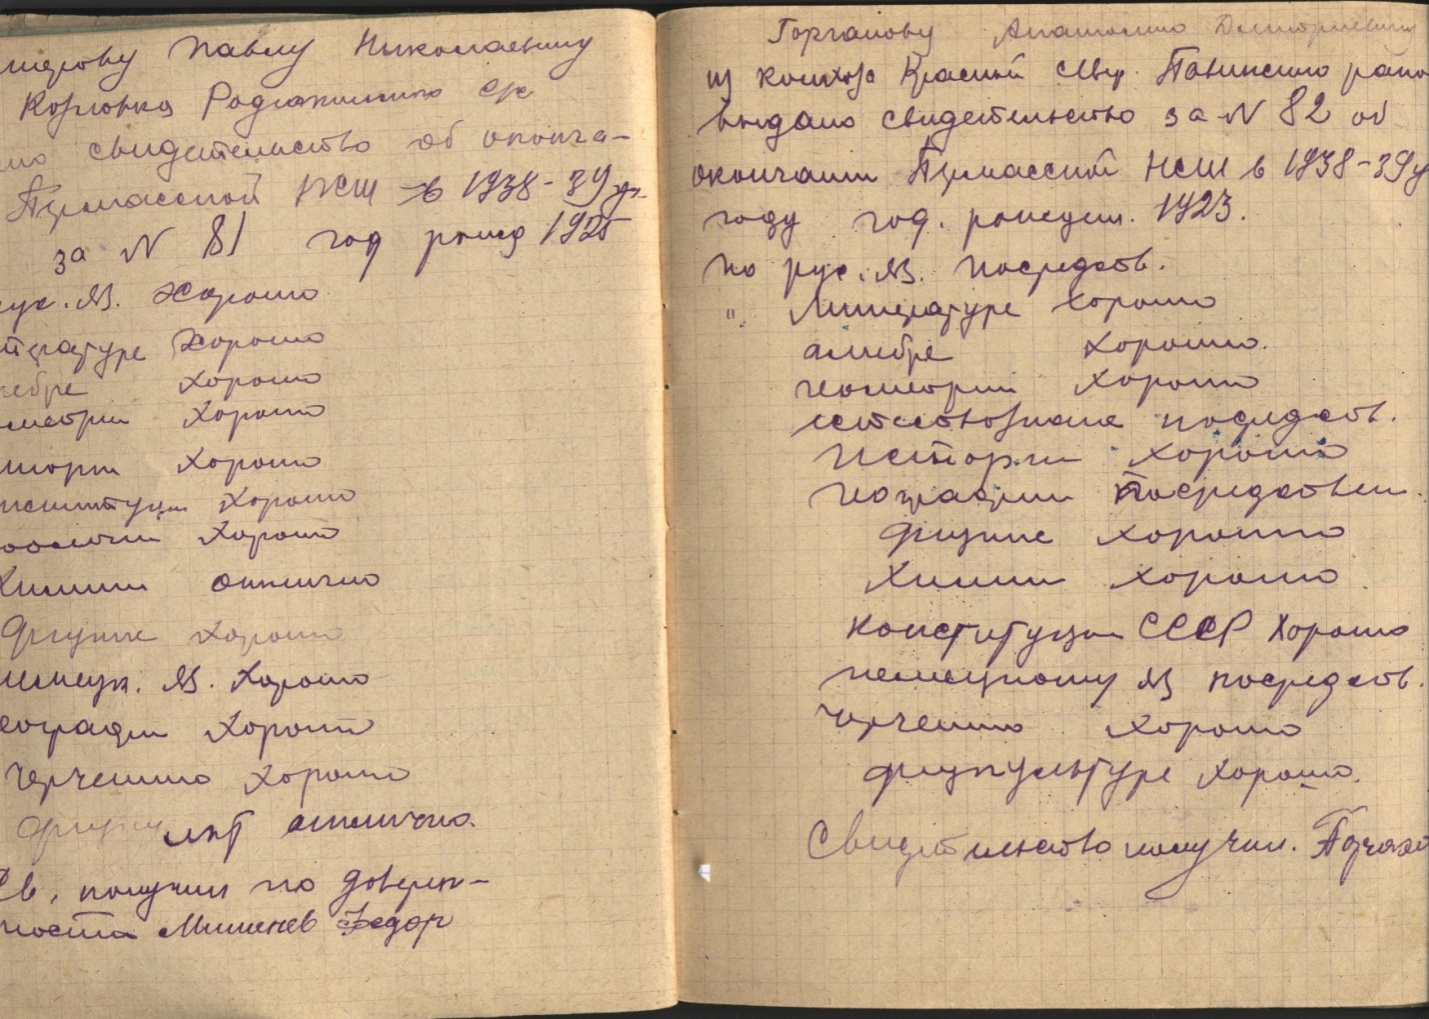 Павлу Николаевичу
Козловка
свидетельство об оконча-
НСШ в 1938-39 уч.
за N 81 год рожд 1925
рус. яз. хорошо
литературе хорошо
гебре хорошо
метрии хорошо
истории хорошо
нституции хорошо
хорошо
Химии отлично
Физике хорошо
немецк. яз. хорошо
еографии хорошо
Черчению хорошо
отлично.
Св. получил по доверен-
ности Федор
Горганову Анатолию Дмитриевичу
из колхоза Красный района
выдано свидетельство за N 82 об
окончании НСШ в 1938-39 у
году год. рожден. 1923.
по рус. яз. посредств.
" Литературе хорошо
алгебре хорошо.
геометрии хорошо
естествознание посредств.
Истории хорошо
географии посредствен.
физике хорошо
Химии хорошо
Конституции СССР хорошо
немецкому яз посредств.
черчению хорошо
физкультуре хорошо.
Свидетельство получил.